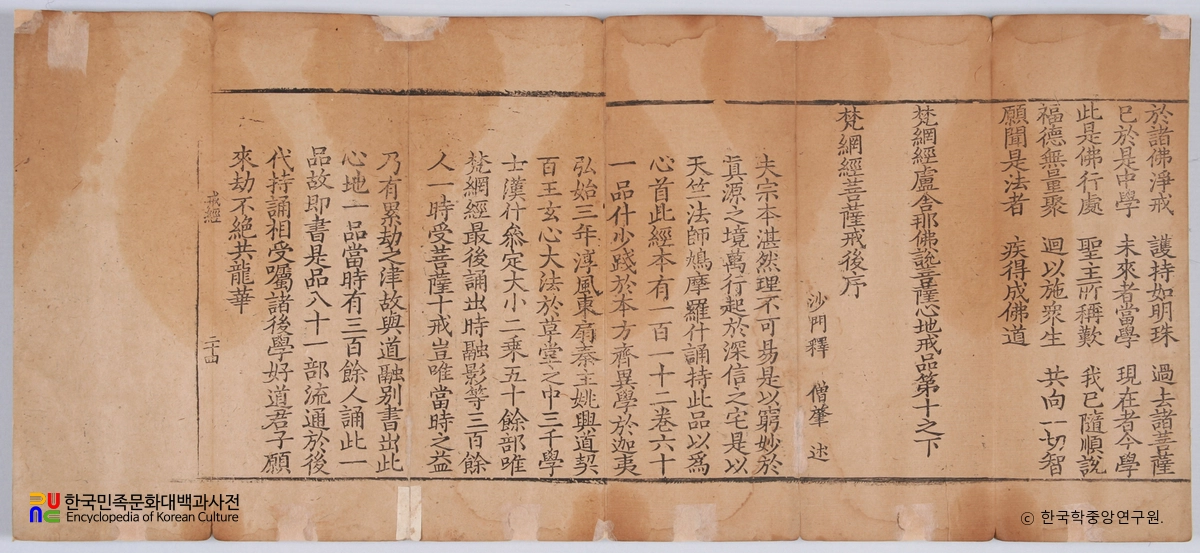 於諸佛淨戒　護持如明珠　過去諸菩薩
已於是中學　未來者當學　現在者今學
此是佛行處　聖主所稱歎　我已隨順說
福德無量聚　迴以施衆生　共向一切智
願聞是法者　疾得成佛道
梵網經盧舍那佛說菩薩心地戒品第十之下
梵網經菩薩戒後序
沙門釋　僧肇　述
夫宗本湛然理不可易是以窮妙於
眞源之境萬行起於深信之宅是以
天竺法師鳩摩羅什誦持此品以爲
心首此經本有一百一十二卷六十
一品什少踐於本方齊異學於迦夷
弘始三年淳風東扇秦主姚興道契
百王玄心大法於草堂之中三千學
士漢什叅定大小二乘五十餘部唯
梵網經最後誦出時融影等三百餘
人一時受菩薩十戒豈唯當時之益
乃有累劫之津故與道融別書出此
心地一品當時有三百餘人誦此一
品故即書是品八十一部流通於後
代持誦相受囑諸後學好道君子願
來劫不絶共龍華
戒經
二十
한국민족문화대백과사전
Encyclopedia of Korean Culture
© 한국학중앙연구원.